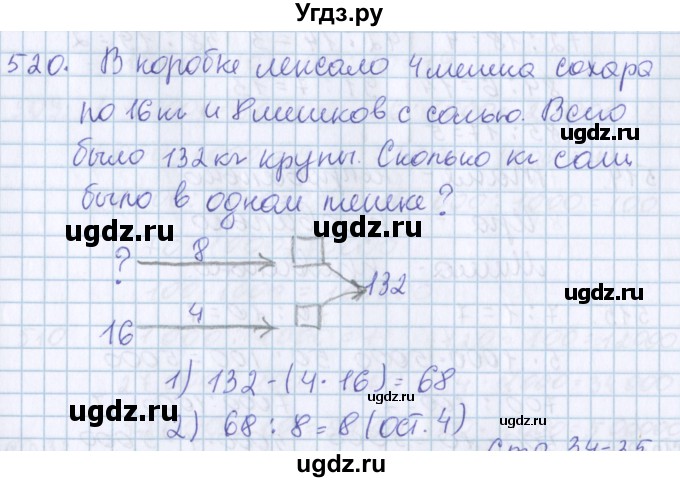 Угдз.ру
520. В коробке лежало 4 мешка сахара
по 16 кг и 8 мешков с солью. Всего
было 132 кг крупы. Сколько кг соли
было в одном мешке?
ugdz.ru ugdz.ru
? 8
132
16 4
ugdz.ru ugdz.ru
1) 132 - (4 · 16) = 68
2) 68 : 8 = 8 (ост. 4)
ugdz.ru ugdz.ru
стр 34-35
ugdz.ru